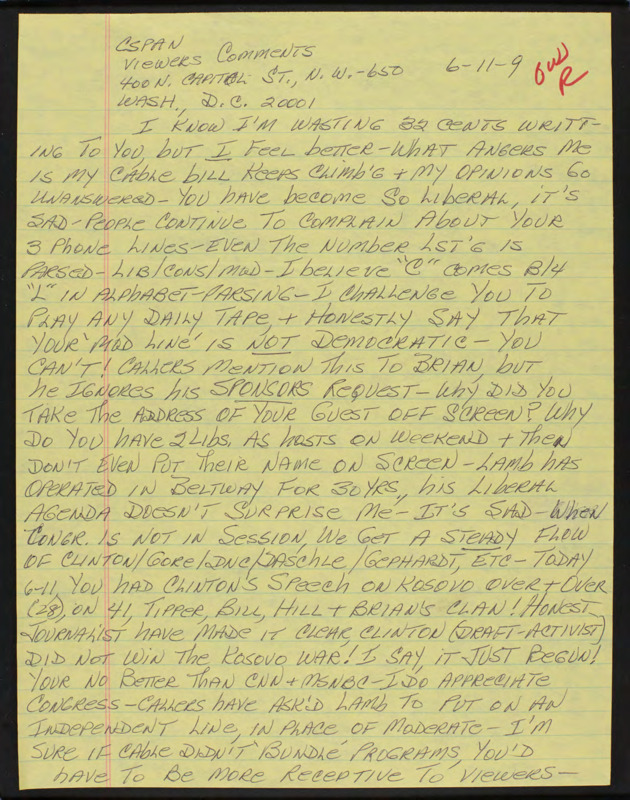 CSPAN
VIEWERS COMMENTS
400 N. CAPITAL ST., N.W.-650 6-11-9
WASH., D.C. 20001
I KNOW I'M WASTING 32 CENTS WRITT-
ING TO YOU BUT I FEEL BETTER-WHAT ANGERS ME
IS MY CABLE BILL KEEPS CLIMB'G + MY OPINIONS GO
UNANSWERED-YOU HAVE BECOME SO LIBERAL, IT'S
SAD-PEOPLE CONTINUE TO COMPLAIN ABOUT YOUR
3 PHONE LINES-EVEN THE NUMBER LST'G IS
PARSED-LIB/CONS/MOD-I BELIEVE "C" COMES B/4
"L" IN ALPHABET-PARSING-I CHALLENGE YOU TO
PLAY ANY DAILY TAPE, + HONESTLY SAY THAT
YOUR 'MOD LINE' IS NOT DEMOCRATIC-YOU
CAN'T! CALLERS MENTION THIS TO BRIAN, BUT
HE IGNORES HIS SPONSORS REQUEST-WHY DID YOU
TAKE THE ADDRESS OF YOUR GUEST OFF SCREEN? WHY
DO YOU HAVE 2 LIBS. AS HOSTS ON WEEKEND + THEN
DON'T EVEN PUT THEIR NAME ON SCREEN-LAMB HAS
OPERATED IN BELTWAY FOR 30 YRS., HIS LIBERAL
AGENDA DOESN'T SURPRISE ME-IT'S SAD-WHEN
CONGR. IS NOT IN SESSION, WE GET A STEADY FLOW
OF CLINTON/GORE/DNC/DASCHLE/GEPHARDT, ETC-TODAY
6-11, YOU HAD CLINTON'S SPEECH ON KOSOVO OVER + OVER
(28), ON 41, TIPPER, BILL, HILL + BRIAN'S CLAN! HONEST
JOURNALIST HAVE MADE IT CLEAR, CLINTON (DRAFT-ACTIVIST)
DID NOT WIN THE KOSOVO WAR! I SAY, IT JUST BEGUN!
YOUR NO BETTER THAN CNN + MSNBC-I DO APPRECIATE
CONGRESS-CALLERS HAVE ASK'D LAMB TO PUT ON AN
INDEPENDENT LINE, IN PLACE OF MODERATE-I'M
SURE IF CABLE DIDN'T 'BUNDLE' PROGRAMS, YOU'D
HAVE TO BE MORE RECEPTIVE TO VIEWERS-